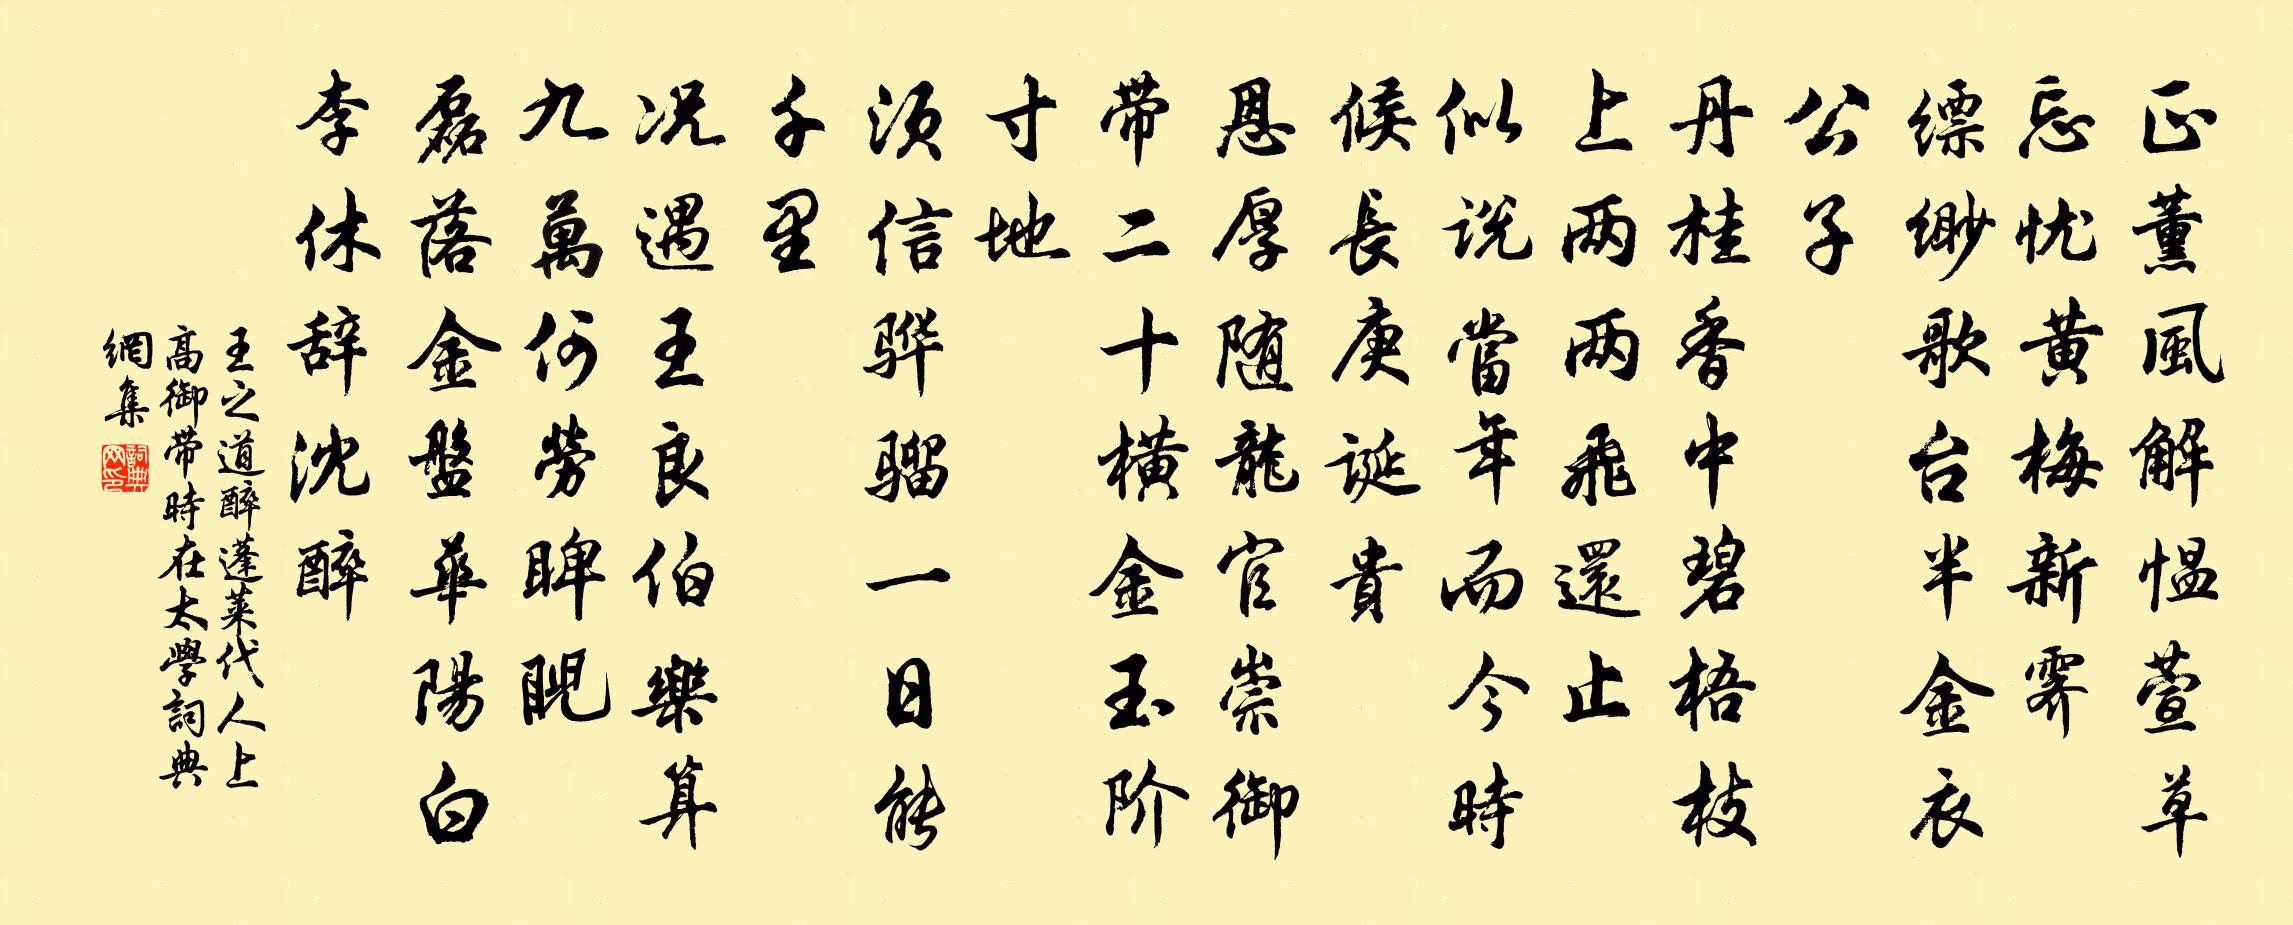 正薰風解愠萱草
忘忧黄梅新霁
缥缈歌台半金衣
公子
丹桂香中碧梧枝
上两两飛還止
似说當年而今時
候長庚誕貴
恩厚随龍官崇御
带二十横金玉阶
寸地
须信骅骝一日能
千里
况遇王良伯樂算
九萬何勞睥睨
磊落金盤華陽白
李休辞沈醉
王之道醉蓬莱代人上
高御带時在太學詞典
網集
詞典
网印